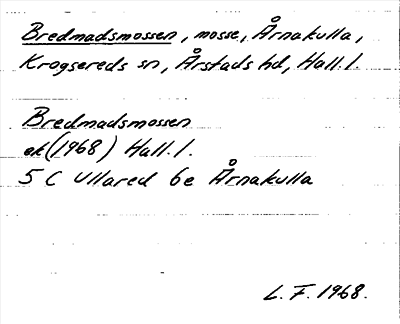 Bredmadsmossen, mosse, Årnakulla,
Krogsereds sn, Årstads hd, Hall. l.
Bredmadsmossen
ek (1968) Hall. l.
5 C Ullared 6e Årnakulla
L. F. 1968.